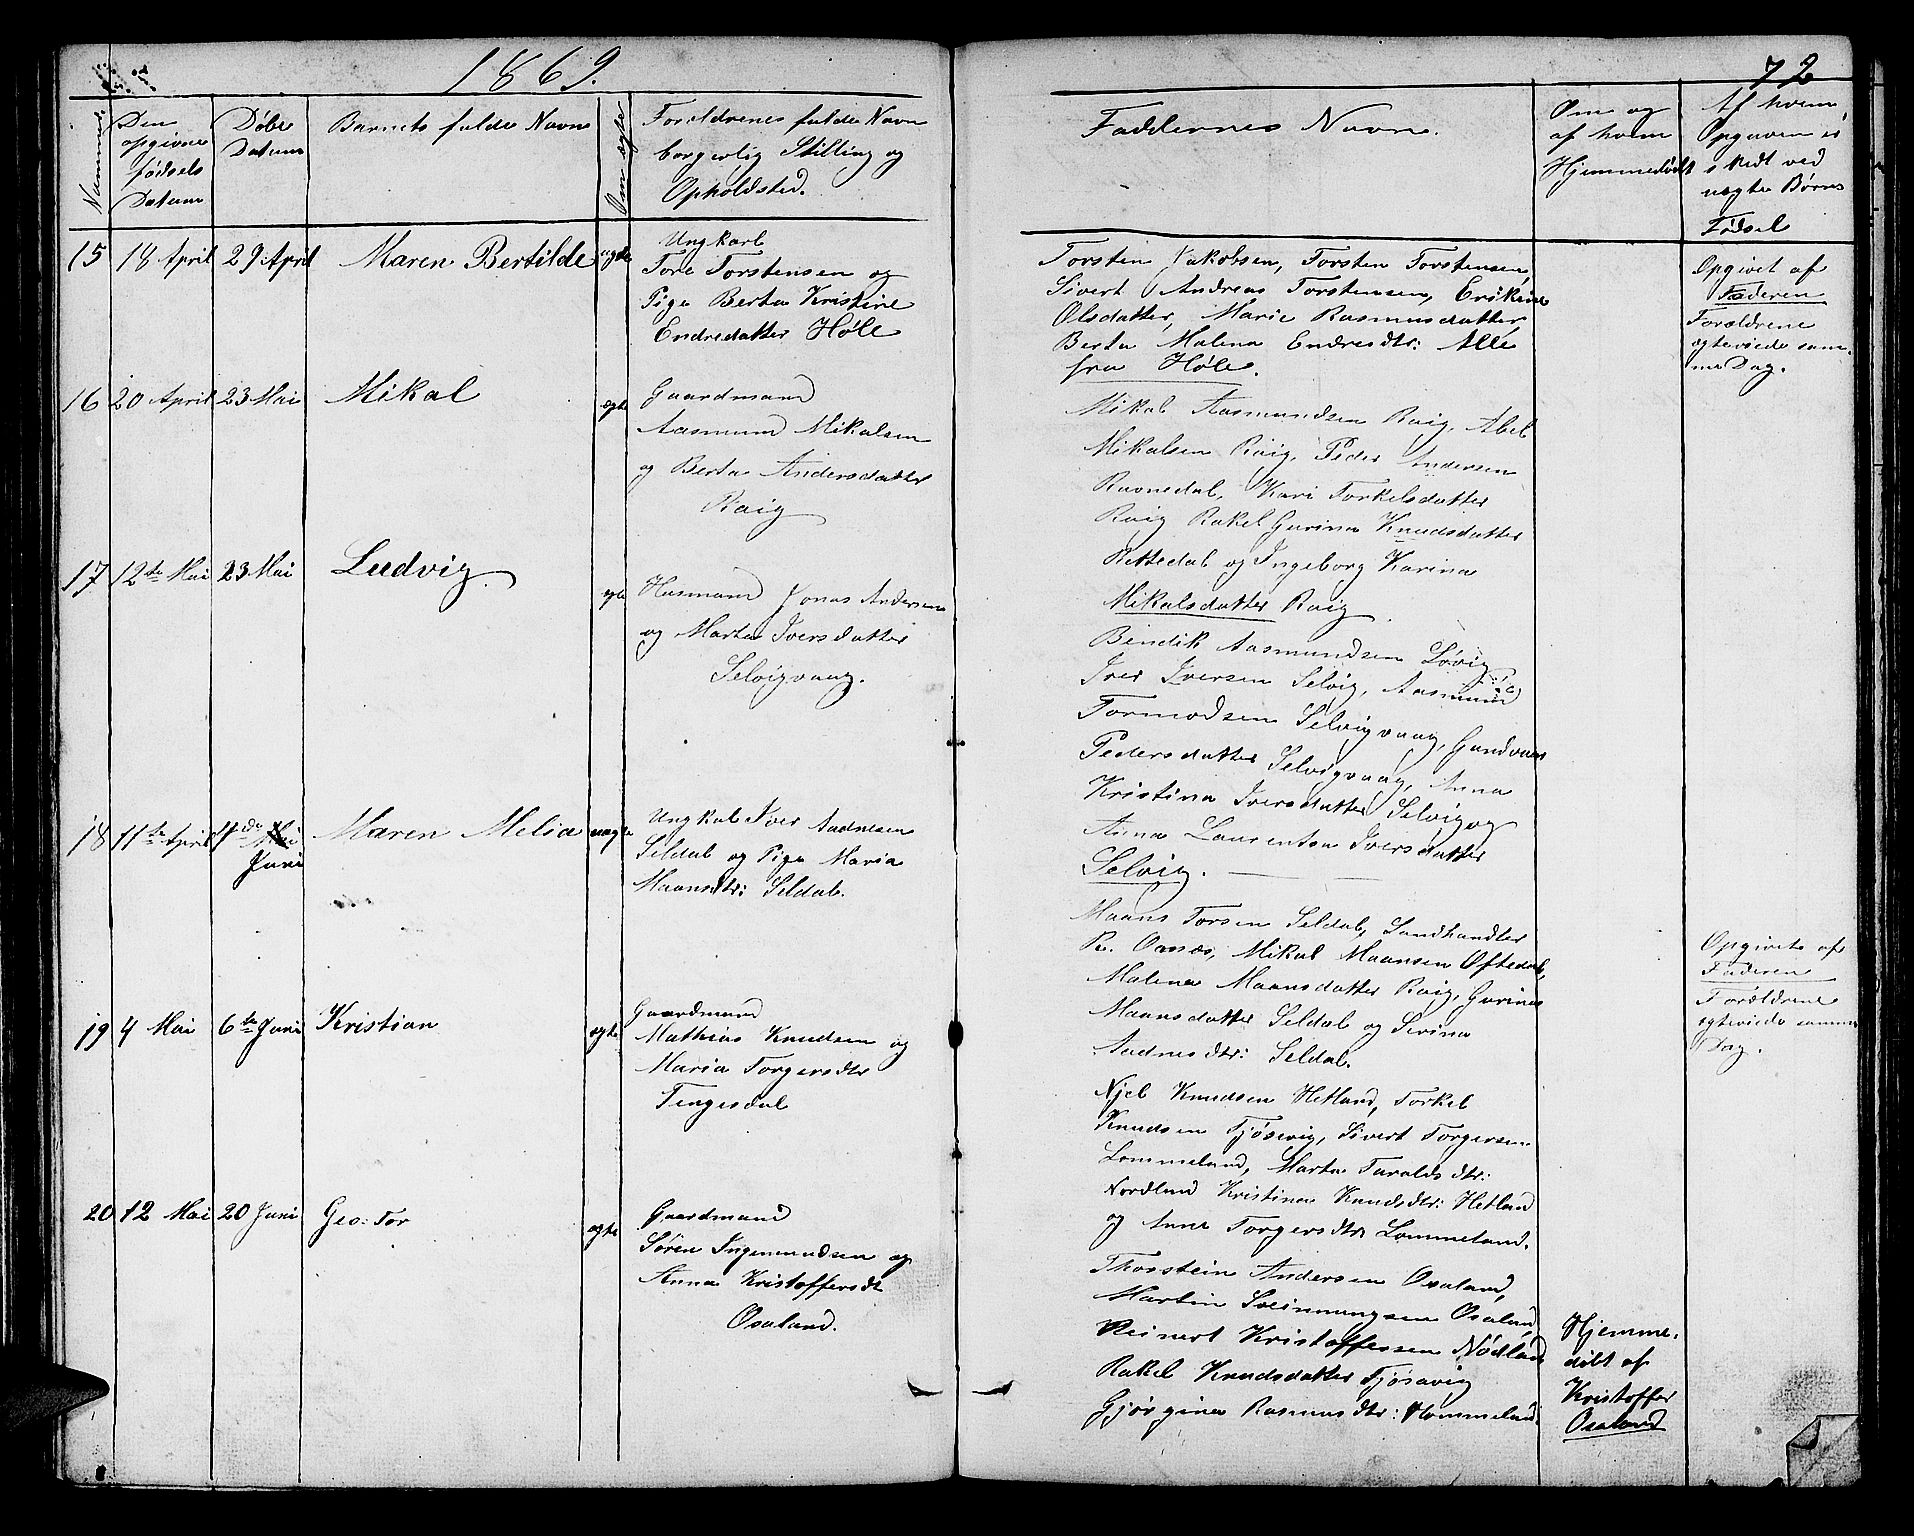 1869.
72
Nummer
Den opgivne fødsels Datum
Døbe Datum
Barnets fulde Navn
Om ægte
Forældrenes fulde Navn
borgerlig Stilling og
Opholdsted.
Faddernes Navne.
Om og af hvem Hjemmedøbt
Af hvem Opgaven er skedt ved uægte Børns Fødsel
15 18 April 29 April Maren Bertilde
Ungkarl
Tore Torstensen og
Pige Berta Kristine
Endredatter Høle
Torsten Jakobsen, Torsten Torstensen,
Sivert Andreas Torstensen, Erikine
Olsdatter, Marie Rasmusdatter
Berta Malena Endresdtr: Alle
fra Høle.
Opgivet af
Faderen
Forældrene
egteviede sam-
me Dag.
16 20 April 23 Mai Mikal ægte
Gaardmand
Aasmund Mikalsen
og Berta Andersdatter
Raig
Mikal Aasmundsen Raig, Abel
Mikalsen Raig, Peder Andersen
Ravnedal, Kari Torkelsdatter
Raig Rakel Gurina Knudsdatter
Rettedal og Ingeborg Karina
Mikalsdatter Raig.
17 12te Mai 23 Mai Ludvig. egte
Husmand Jonas Andersen
og Marta Iversdatter
Selvigvaag.
Bendik Aasmundsen
Iver Iversen Selvig, Aasmund
Tormodsen Selvigvaag, Gundvor
Pedersdatter Selvigvaag, Anna
Kristina Iversdatter Selvig og
Anna Laurentsa Iversdatter
Selvig.
18 11te April Mai Juni Maren Melia uægte
Ungkal Iver Aadnesen
Seldal og Pige Maria
Maansdtr: Seldal.
Maans Torsen Seldal, Landhandler
R. Oanæs, Mikal Maansen Oftedal,
Malena Maansdatter Raig, Gurina
Maansdatter Seldal og Serina
Aadnesdtr: Seldal.
Opgivets af
Faderen
Forældrene
egteviede samme
Dag.
19 4 Mai 6te Juni Kristian egte
Gaardmand
Mathias Knudsen og
Maria Torgersdtr
Tengesdal
Njel Knudsen Hetland, Torkel
Knudsen Tjøsevig, Sivert Torgersen
Lommeland, Marta Taraldsdtr:
Nordland Kristina Knudsdtr: Hetland
og Anne Torgersdtr Lommeland.
20 12 Mai 20 Juni Geo: Tor egte
Gaardmand
Søren Ingemundsen og
Anna Kristoffersdt
Osaland.
Thorstein Andersen Osaland,
Martin Sveinungsen Osaland
Reinert Kristoffersen Nødland
Rakel Knudsdatter Tjøsavig
Gjørgina Rasmusdtr: Hommeland
Hjemme-
døbt af
Kristoffer
Osaland